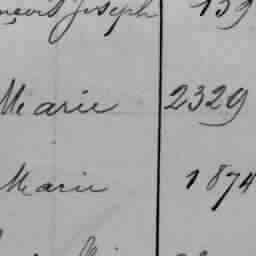 Joseph 139
Marie 2329
Marie 1874